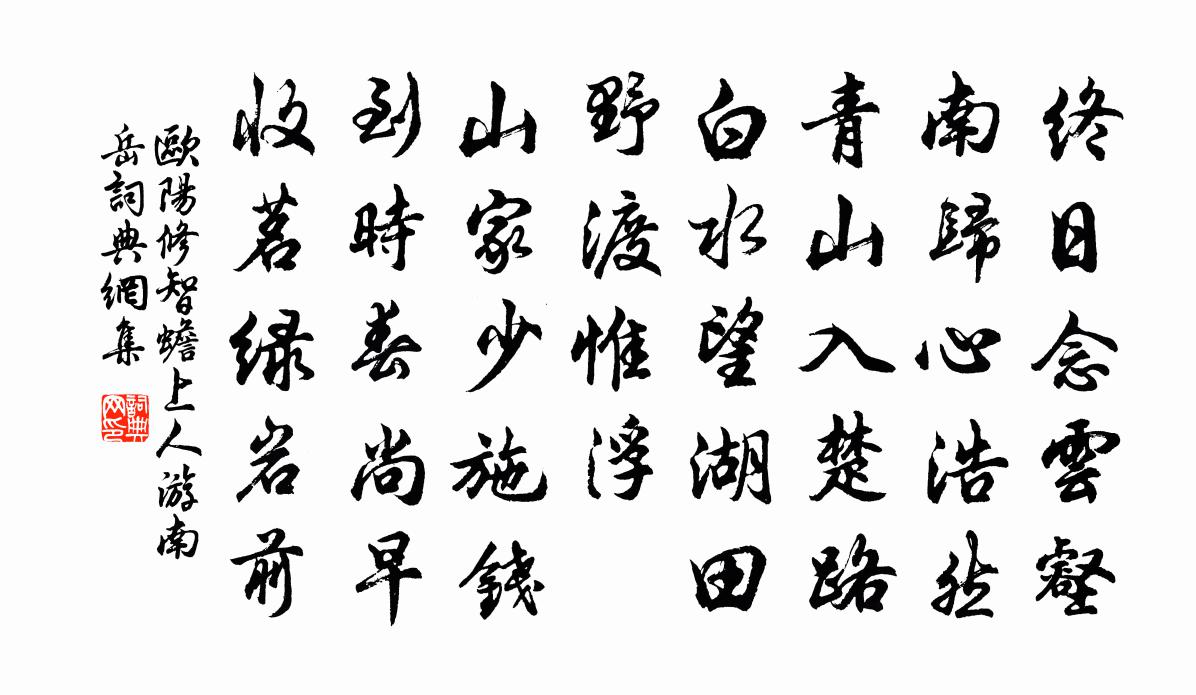 终日念雲壑
南歸心浩然
青山入楚路
白水望湖田
野渡惟浮
山家少施錢
到時春尚早
收茗绿岩前
歐陽修智蟾上人游南
岳詞典網集
詞典
网印